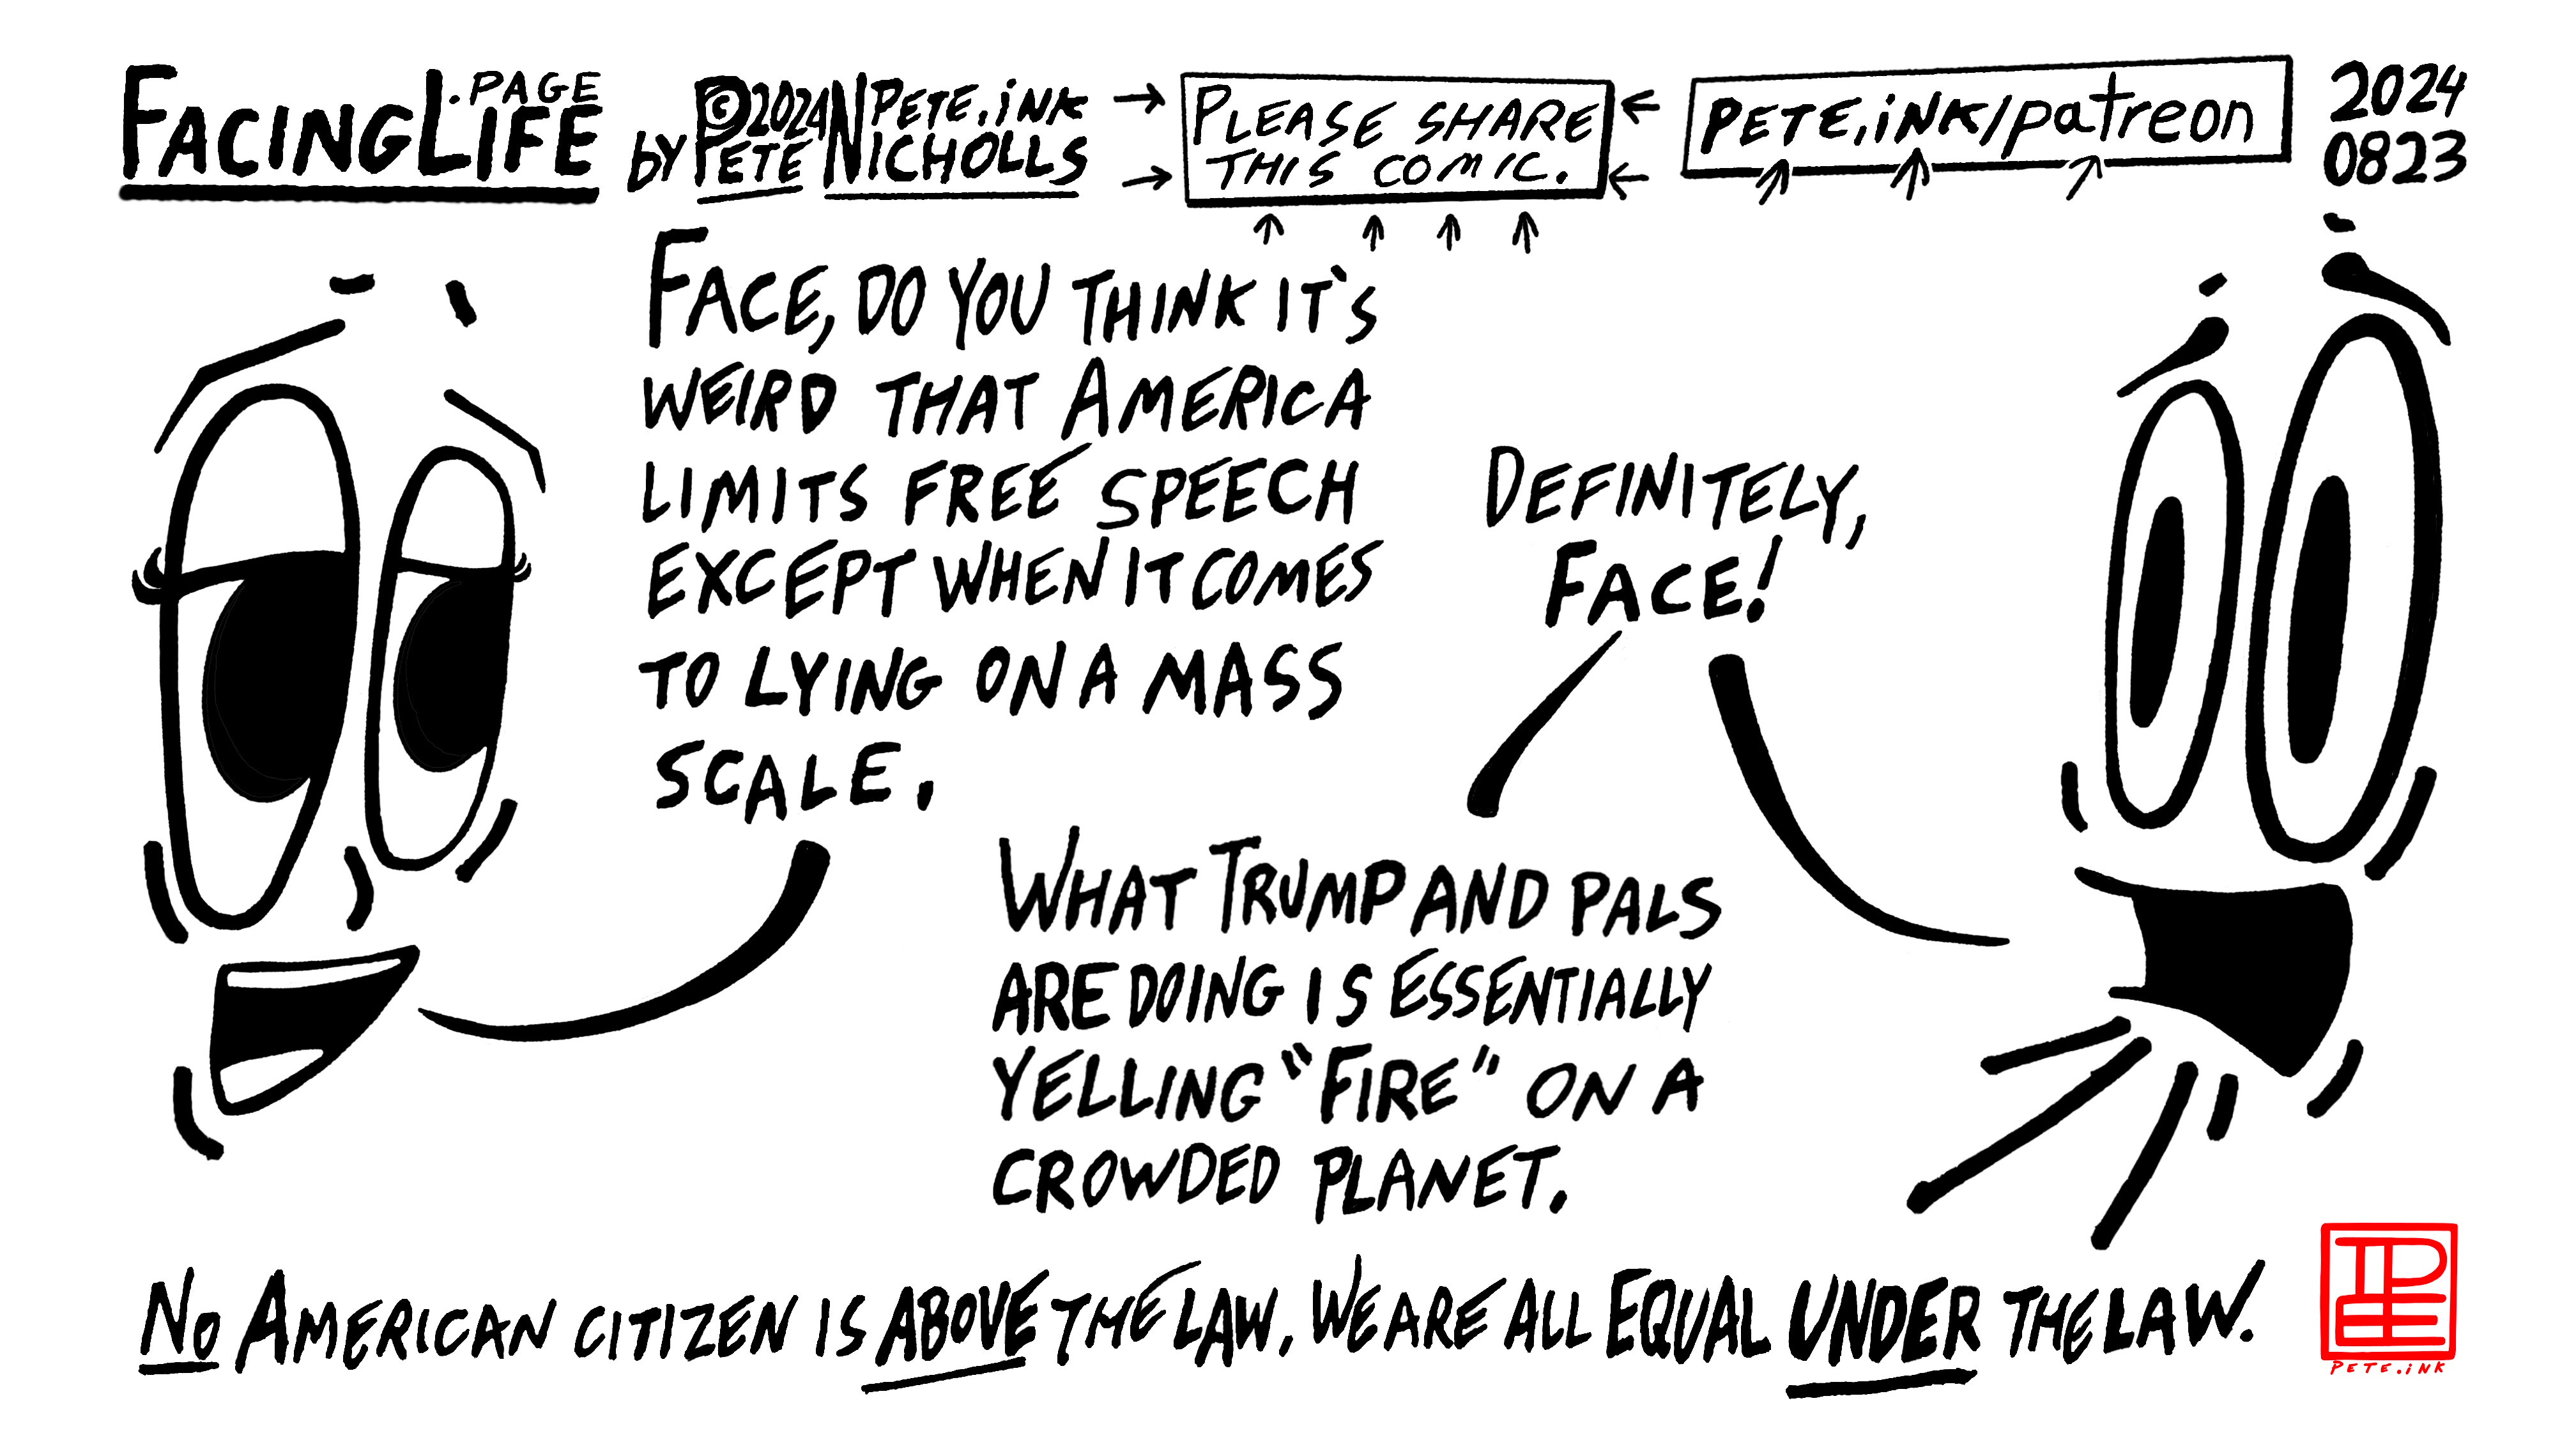 FACINGLIFE.PAGE
BY PETE NICHOLLS
©2024 PETE.iNK
PLEASE SHARE
THIS COMIC.
PETE.iNK/patreon
2024
0823
FACE, DO YOU THINK IT'S
WEIRD THAT AMERICA
LIMITS FREE SPEECH
EXCEPT WHEN IT COMES
TO LYING ON A MASS
SCALE.
DEFINITELY,
FACE!
WHAT TRUMP AND PALS
ARE DOING IS ESSENTIALLY
YELLING "FIRE" ON A
CROWDED PLANET.
NO AMERICAN CITIZEN IS ABOVE THE LAW. WE ARE ALL EQUAL UNDER THE LAW.
PETE.iNK